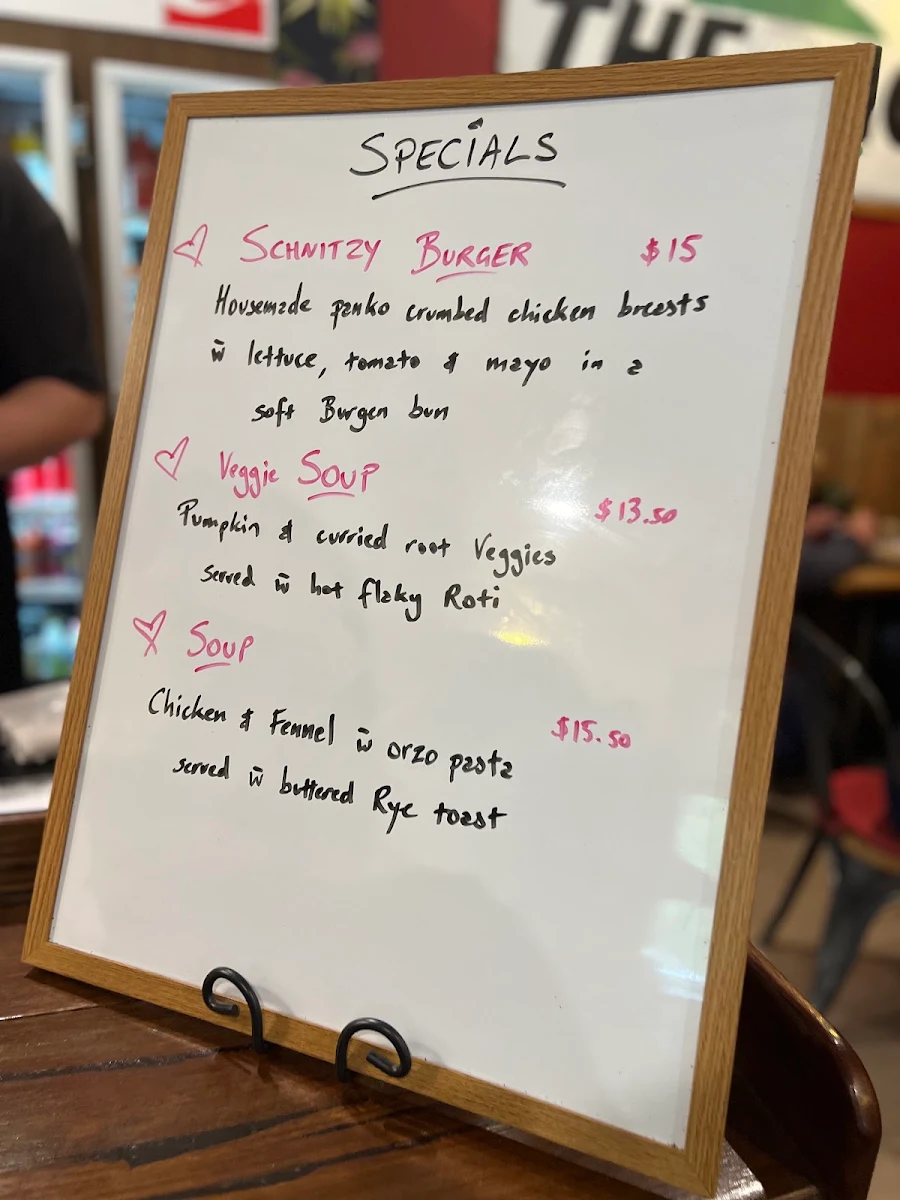 THE
SPECIALS
SCHNITZY BURGER $15
Housemade panko crumbed chicken breasts
w̄ lettuce, tomato & mayo in a
soft Burgen bun
Veggie SOUP $13.50
Pumpkin & curried root Veggies
served w̄ hot flaky Roti
SOUP
Chicken & Fennel w̄ orzo pasta $15.50
served w̄ buttered Rye toast